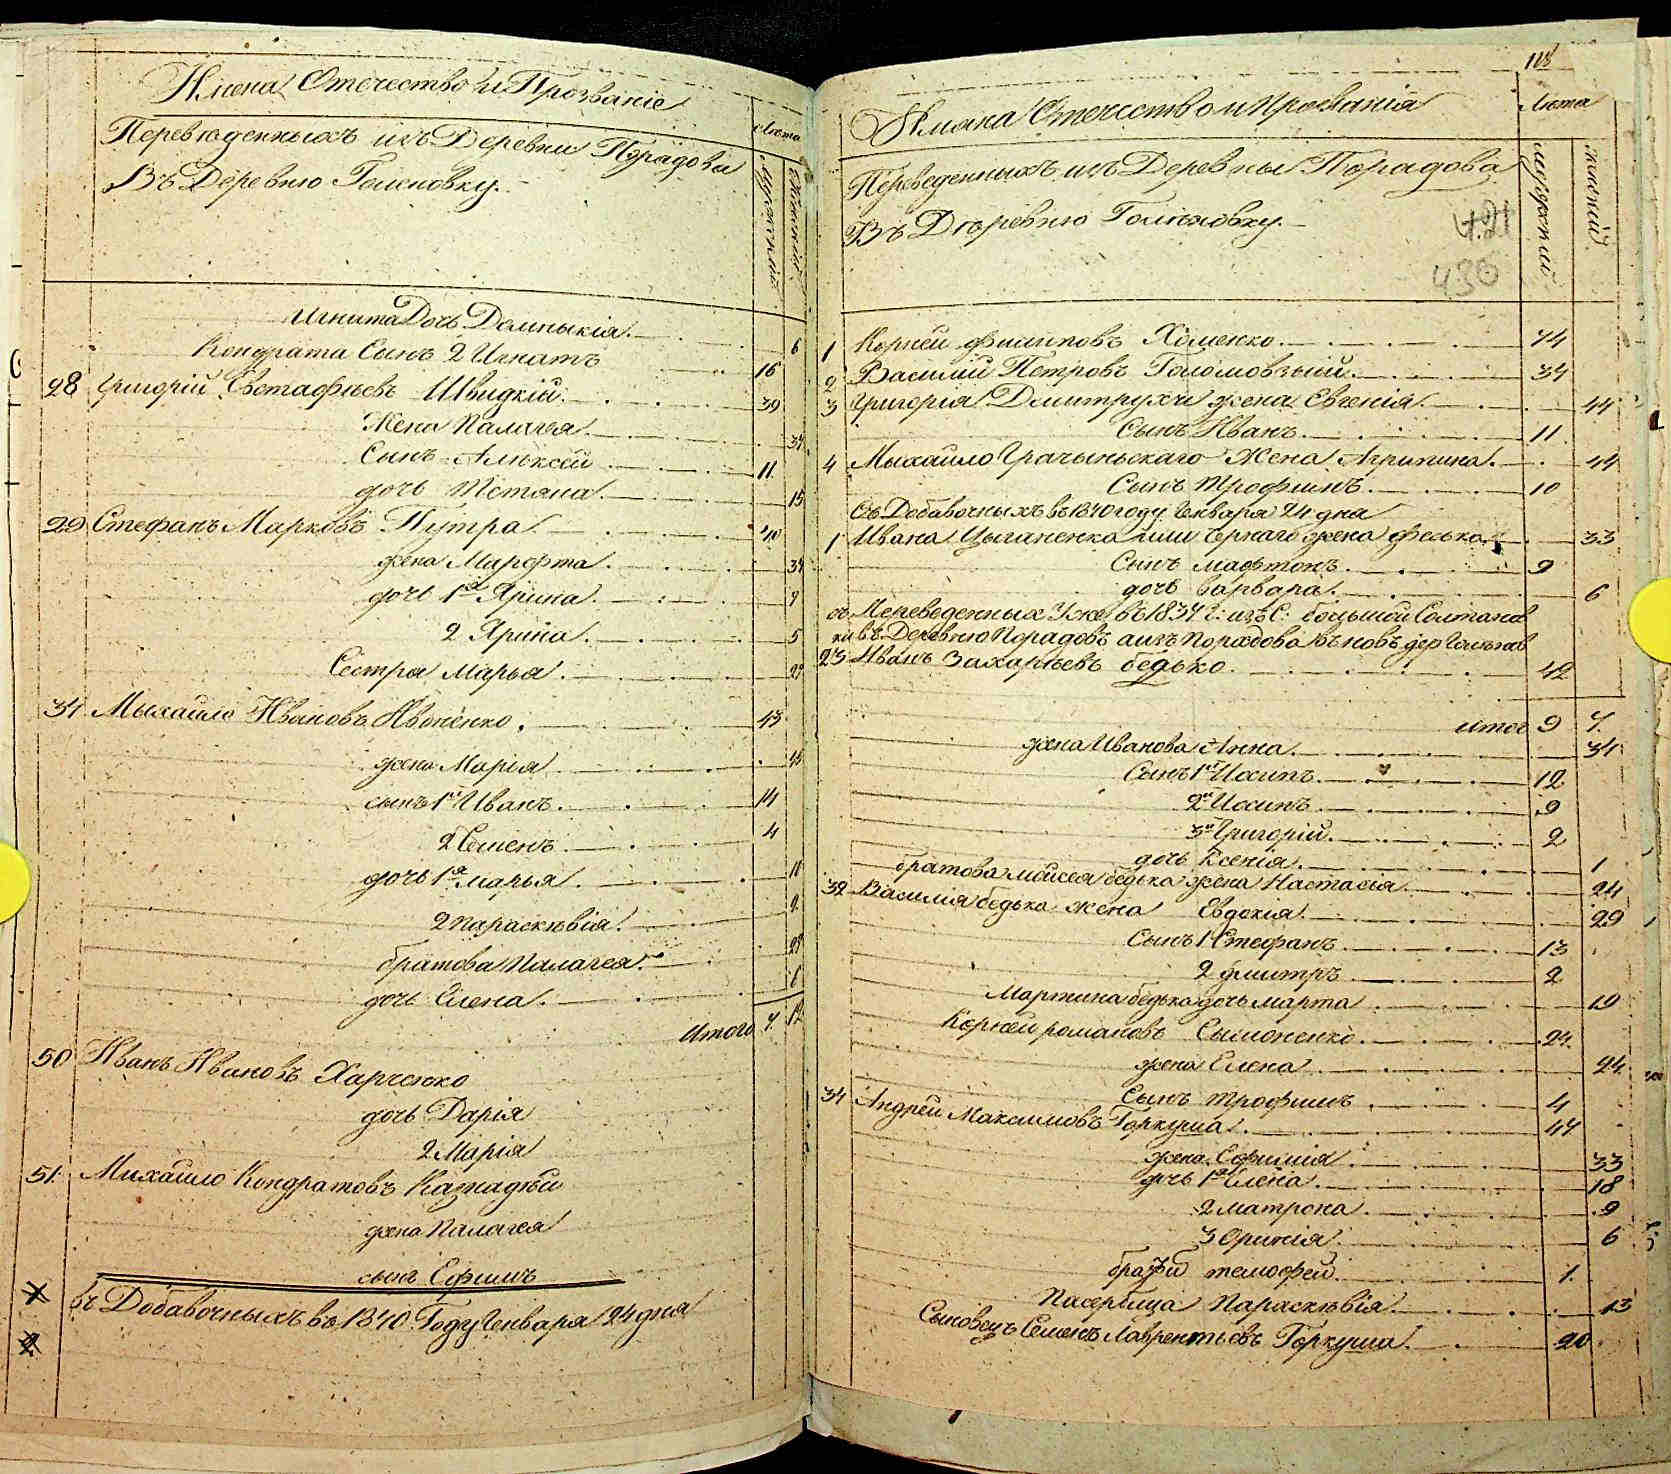 Имена Отечество и Прозваніе
Лѣта
Переведенныхъ изъ Деревни Порадова
Въ Деревню Голековку.
мужескій
женскій
Игната Дочь Домникія 6
Кондрата Сынъ 2 Игнатъ 16
28 Григорій Евстафіевъ Швидкій 39
Жена Палагея 34
Сынъ Алексей 11
дочь Тетяна 15
29 Стефанъ Марковъ Путра 40
жена Марфта 34
дочь 1я Ярина 9
2 Ярина 5
Сестра Марья 22
34 Мыхайло Ивановъ Ивоненко 43
жена Марія
сынъ 1й Иванъ 14
2 Семенъ 4
дочь 1я марья 11
2 параскѣвія 9
братова Палагея
дочь Елена
Итого 7 12
50 Иванъ Ивановъ Харченко
дочь Дарія
2 Марія
51 Михайло Кондратовъ Кажадѣй
жена Палагея
сынъ Ефимъ
въ Добавочныхъ въ 1840 Году Генваря 24 дня
118
Имяна Отечество и Прозванія
Лѣта
Переведенныхъ изъ Деревны Порадова
Въ Деревню Голѣковку.
мужескій
женскій
421
436
1 Корней филиповъ Хоменко 44
2 Василий Петровъ Голомовзый 34
3 Григорія Дмитрухи жена Евгенія 44
Сынъ Иванъ 11
4 Мыхайло Грачыньскаго Жена Агрипина 44
Сынъ Трофимъ 10
Съ Добавочныхъ въ 1840 году Генваря 24 дня
1 Ивана Цыганенка или Чернаго жена феська 33
Сынъ мафтонъ 9
дочь Варвара 6
съ Переведенных Уже въ 1834 г: изъ С: большой Солтанов
ки въ Деревню Порадовъ а изъ Порадова въ новъ дер Голѣков
23 Иванъ Захаріевъ бедько 42
итого 9 7
жена Иванова Анна 34
Сынъ 1й Иосипъ 12
2й Иосипъ 9
3й Григорій 2
дочь Ксенія 1
братова мойсея бедька жена Настасія 24
32 Василія бедька жена Евдокія 29
Сынъ 1 Стефанъ 13
2 дмитръ 2
Мартина бедька дочь марта 10
Корней романовъ Сымоненко 24
жена Елена 24
Сынъ трофимъ 4
34 Андрей Максимовъ Горкуша 44
жена Ефимія 33
дочь 1я Елена 18
2 матрона 9
3 Оришія 6
братъ темофей 1
Пасербица Параскѣвія 13
Сыновецъ Семенъ Лаврентьевъ Горкуша 20